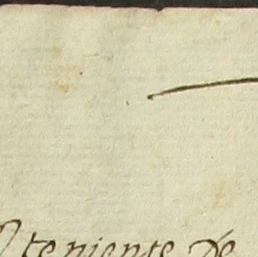 teniente de